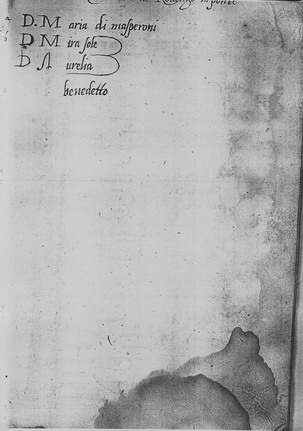 D. M aria di masperoni
D M ira sole
D A urelia
benedetto